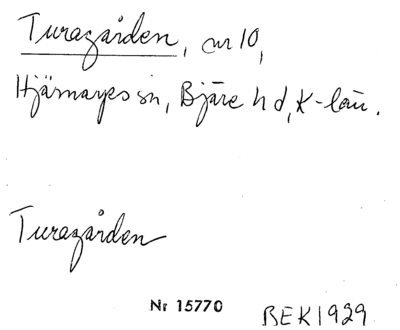 Turagården, nr 10,
Hjärnarps sn, Bjäre hd, K-län.
Turagården
Nr 15770
BEK1929